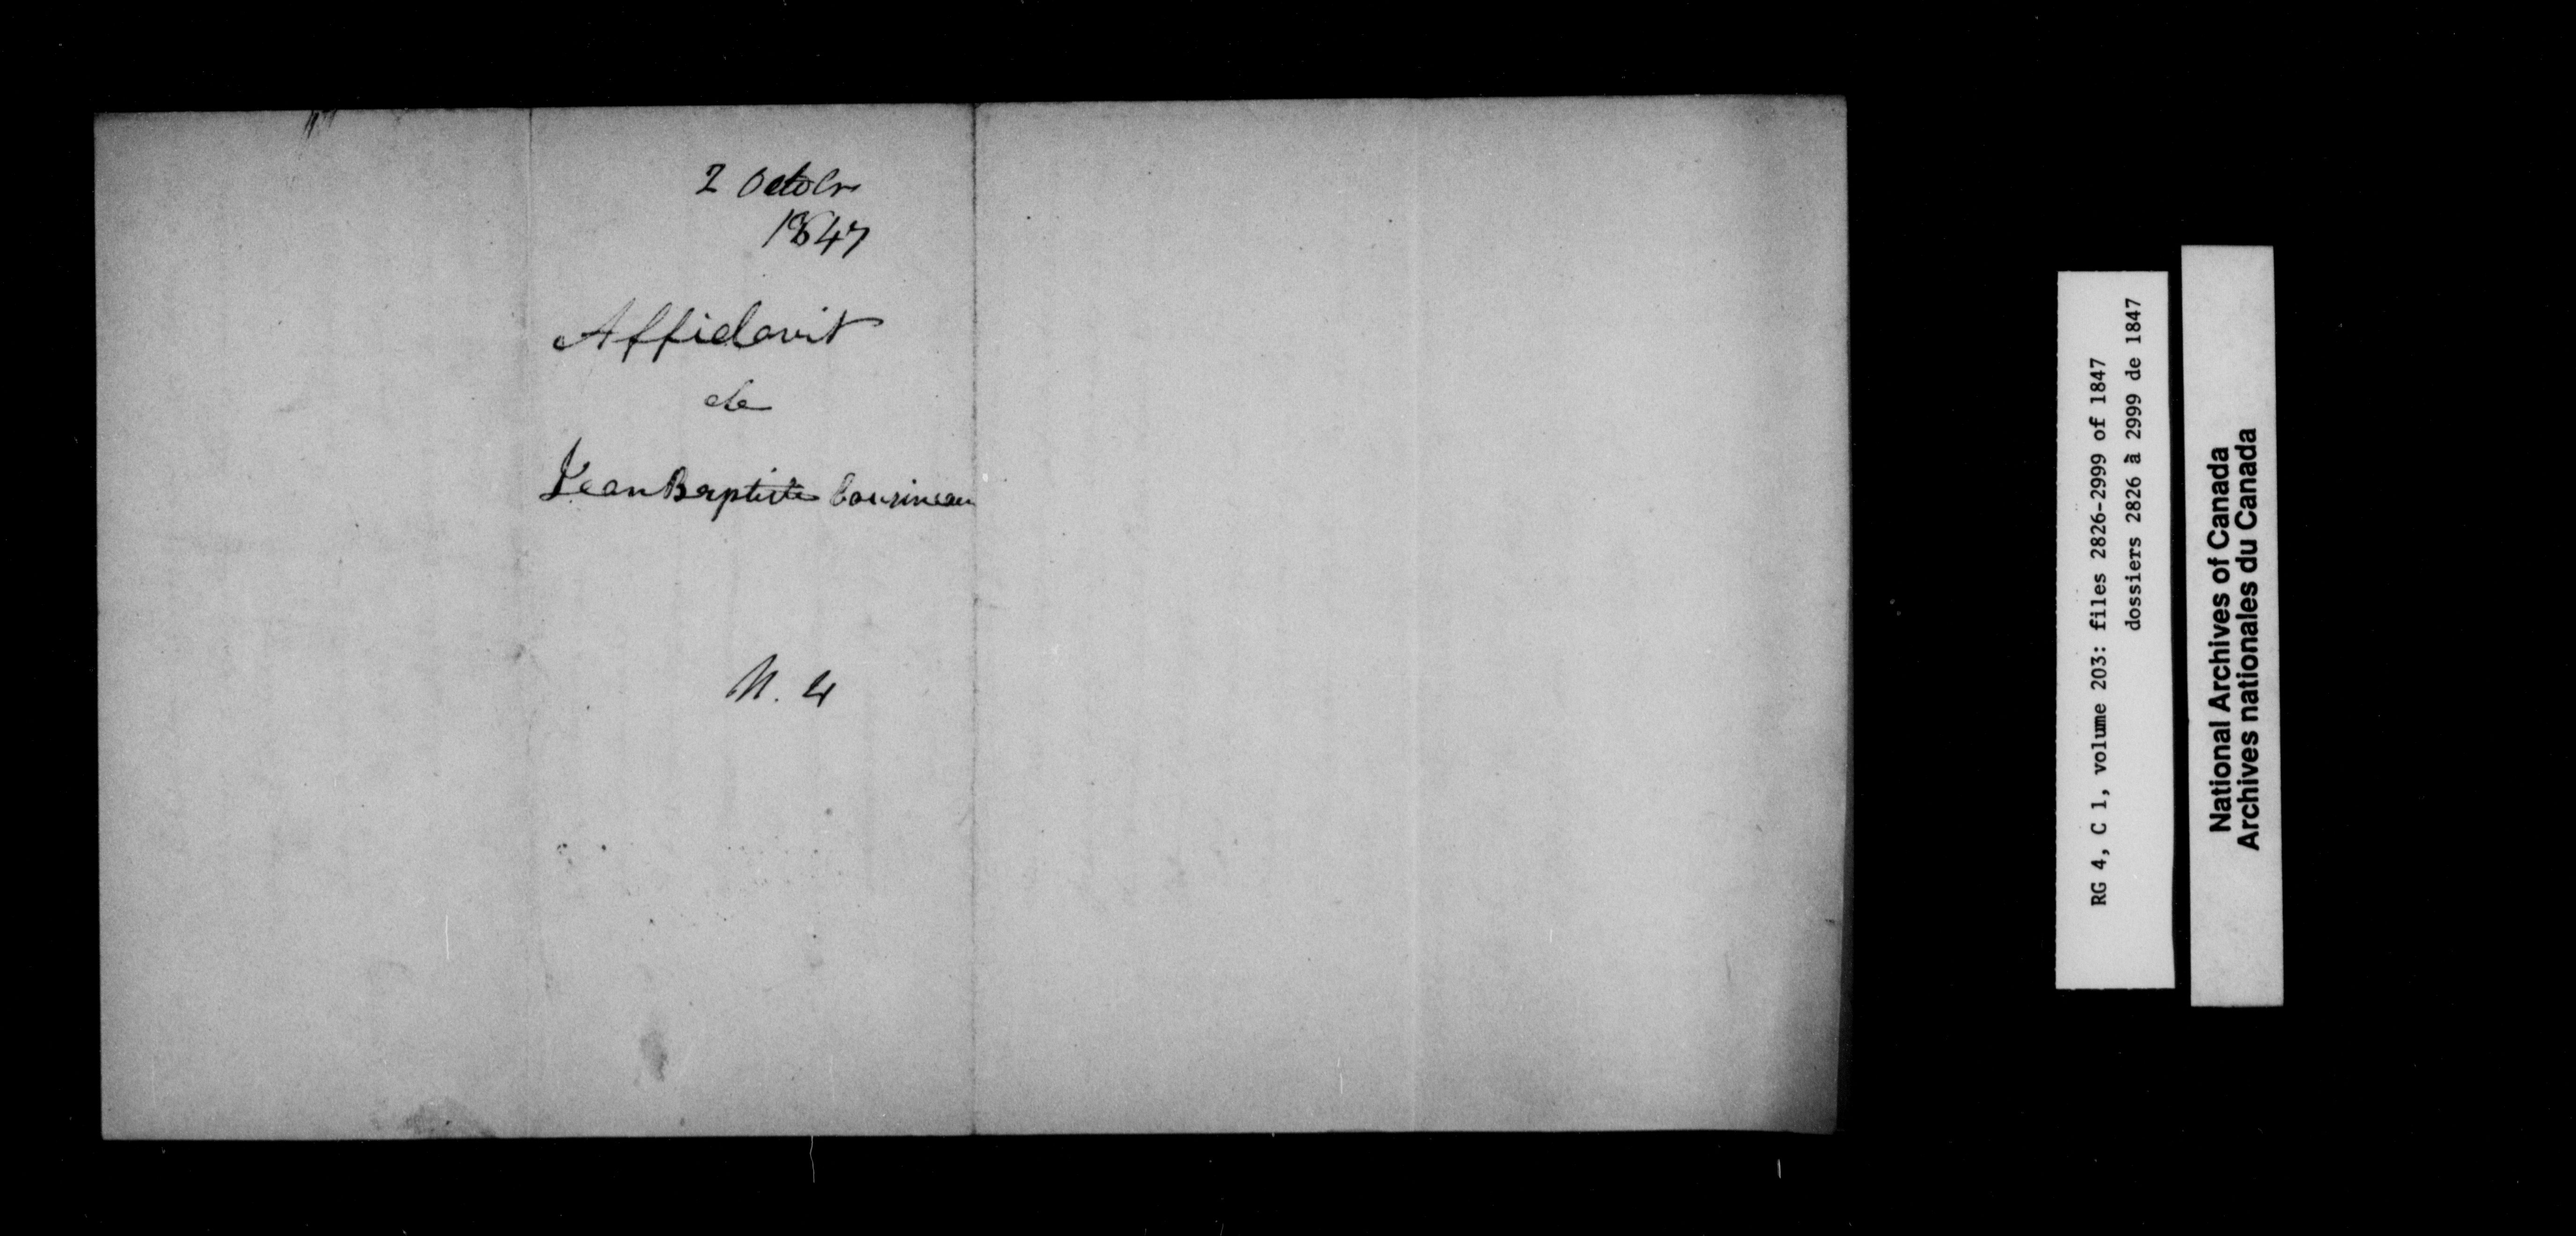 2 Octobre
1847
Affidavit
de
Jean Baptiste Cousineau
N. 4
RG 4, C 1, volume 203: files 2826-2999 of 1847
dossiers 2826 à 2999 de 1847
National Archives of Canada
Archives nationales du Canada